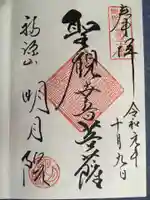 奉拝
令和元年
十月九日
聖観世音菩薩
福源山
明月院